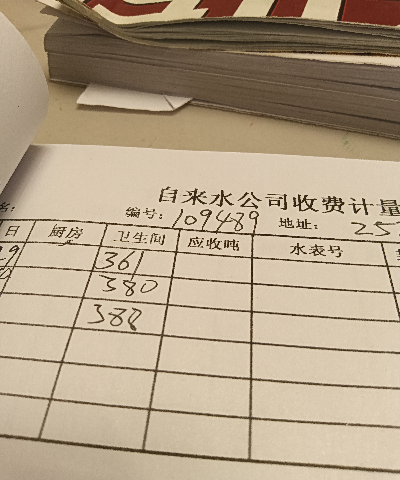 自来水公司收费计量
名: 编号: 109489 地址: 25
日 厨房 卫生间 应收吨 水表号
9 361
380
388